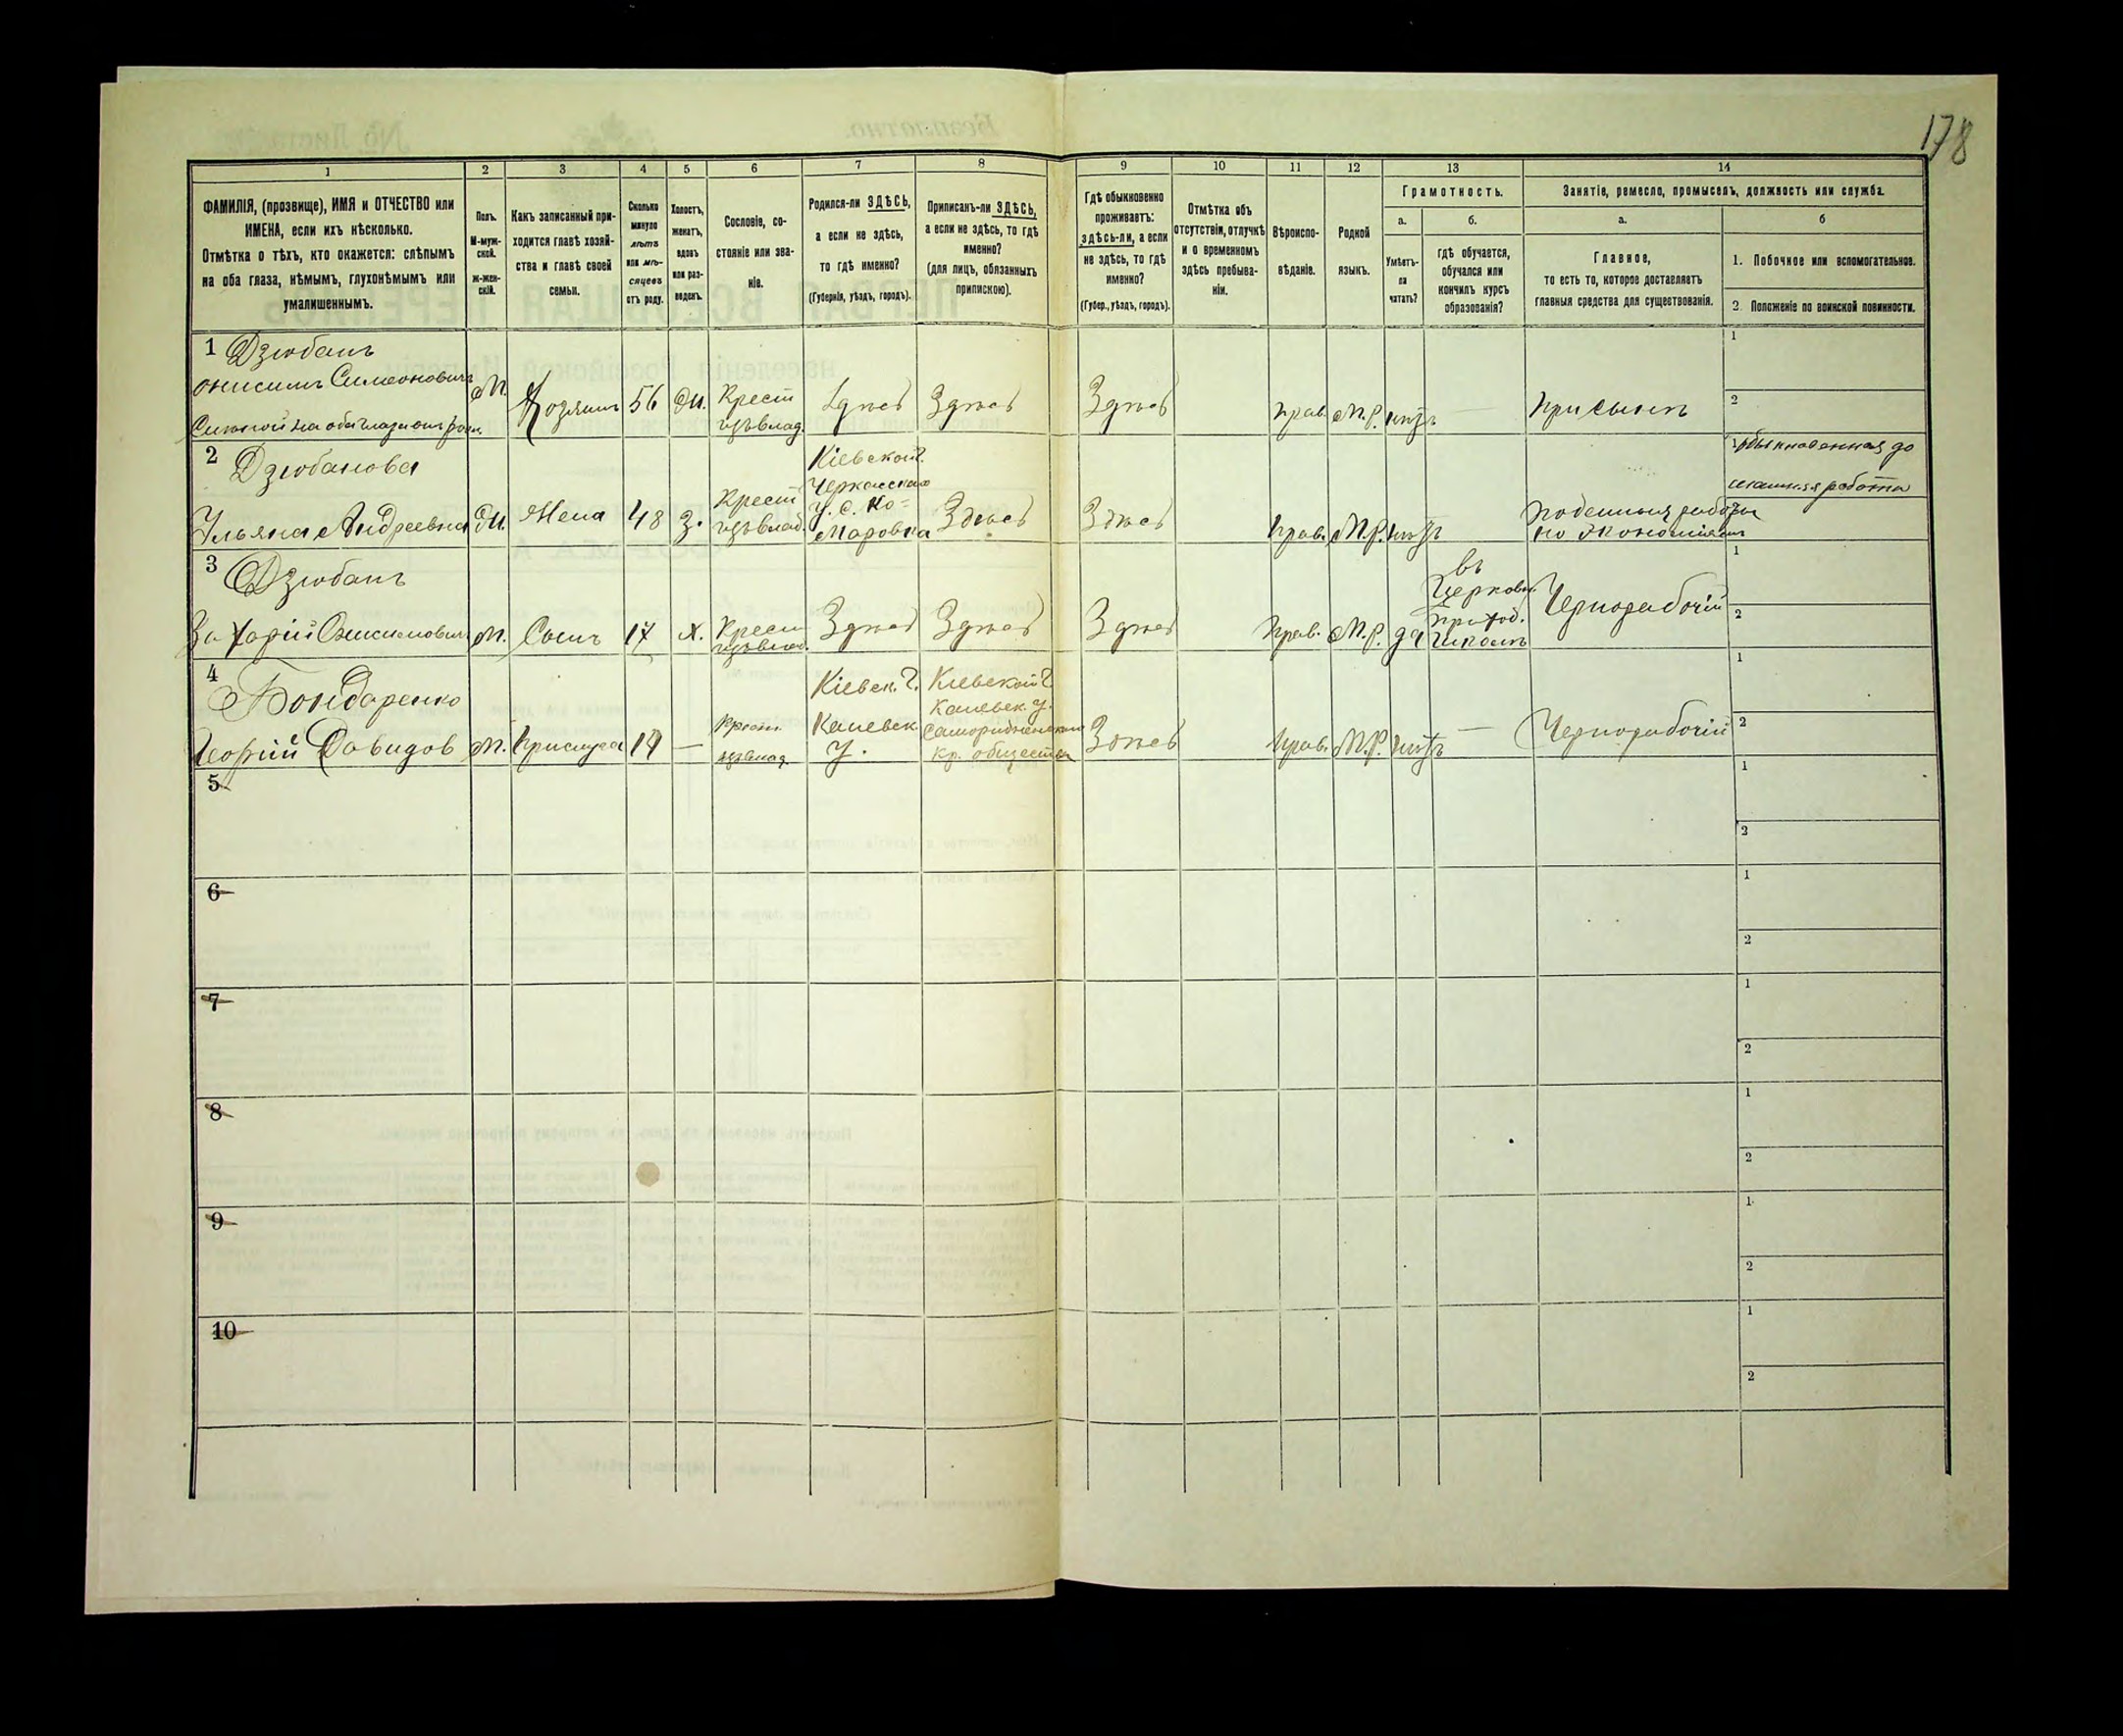 178
1 2 3 4 5 6 7 8 9 10 11 12 13 14
ФАМИЛІЯ, (прозвище), ИМЯ и ОТЧЕСТВО или
ИМЕНА, если ихъ нѣсколько.
Отмѣтка о тѣхъ, кто окажется: слѣпымъ
на оба глаза, нѣмымъ, глухонѣмымъ или
умалишеннымъ.
Полъ.
М-муж-
ской.
Ж-жен-
скій.
Какъ записанный при-
ходится главѣ хозяй-
ства и главѣ своей
семьи.
Сколько
минуло
лѣтъ
или мѣ-
сяцевъ
отъ роду.
Холостъ,
женатъ,
вдовъ
или раз-
веденъ.
Сословіе, со-
стояніе или зва-
ніе.
Родился-ли ЗДѢСЬ,
а если не здѣсь,
то гдѣ именно?
(Губернія, уѣздъ, городъ).
Приписанъ-ли ЗДѢСЬ,
а если не здѣсь, то гдѣ
именно?
(для лицъ, обязанныхъ
припискою).
Гдѣ обыкновенно
проживаетъ:
здѣсь-ли, а если
не здѣсь, то гдѣ
именно?
(Губер., уѣздъ, городъ).
Отмѣтка объ
отсутствіи, отлучкѣ
и о временномъ
здѣсь пребыва-
ніи.
Вѣроиспо-
вѣданіе.
Родной
языкъ.
Грамотность.
а.
Умѣетъ-
ли
читать?
б.
гдѣ обучается,
обучался или
кончилъ курсъ
образованія?
Занятіе, ремесло, промыселъ, должность или служба.
а.
Главное,
то есть то, которое доставляетъ
главныя средства для существованія.
б
1. Побочное или вспомогательное.
2. Положеніе по воинской повинности.
1 Дзюбанъ
Онисимъ Симеоновичъ
Слѣпой на оба глаза отъ рожд.
М.
Хозяинъ
56
Ж.
Крест
изъ влад.
Здѣсь
Здѣсь
Здѣсь
Прав.
М.Р.
нѣтъ
—
При сынѣ
1
2
2 Дзюбанова
Ульяна Андреевна
Ж.
Жена
48
З.
Крест
изъ влад.
Кіевской г.
Черкасскаго
у. с. Ко=
маровка
Здѣсь
Здѣсь
Прав.
М.Р.
нѣтъ
Поденныя работы
по экономіямъ
обыкновенная до
машняя работа
3 Дзюбанъ
Захарій Онисимовичъ
М.
Сынъ
17
Х.
Крест
изъ влад.
Здѣсь
Здѣсь
Здѣсь
Прав.
М.Р.
да
въ
Церковн.
Приход.
Школѣ
Чернорабочій
1
2
4 Бондаренко
Георгій Давидов
М.
Прислуга
19
—
Крест.
изъ влад.
Кіевск. г.
Каневск.
у.
Кіевской г.
Каневск. у.
кр. общества
Здѣсь
Прав.
М.Р.
нѣтъ
—
Чернорабочій
1
2
5
1
2
6
1
2
7
1
2
8
1
2
9
1
2
10
1
2